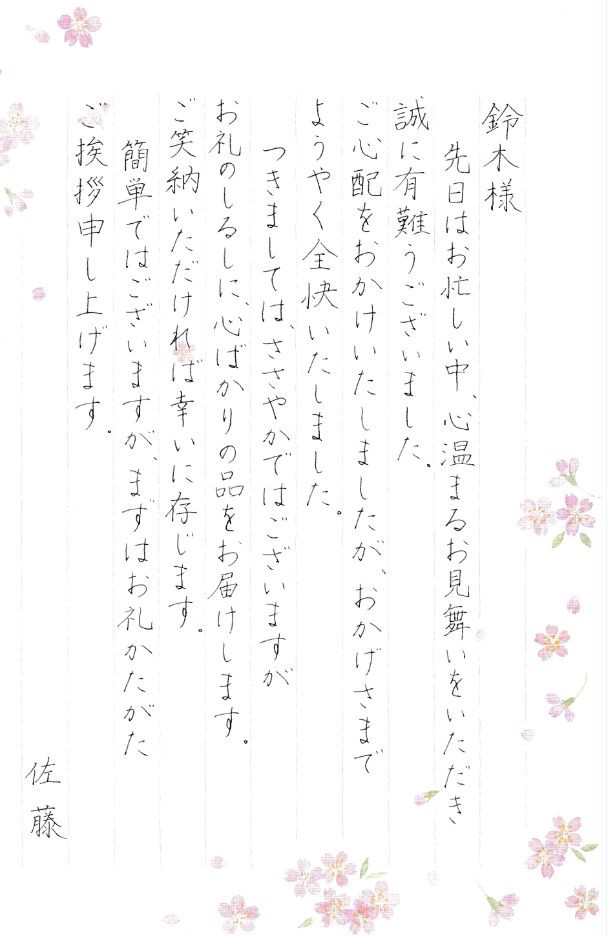 鈴木様
先日はお忙しい中、心温まるお見舞いをいただき
誠に有難うございました。
ご心配をおかけいたしましたが、おかげさまで
ようやく全快いたしました。
つきましては、ささやかではございますが
お礼のしるしに、心ばかりの品をお届けします。
ご笑納いただければ幸いに存じます。
簡単ではございますが、まずはお礼かたがた
ご挨拶申し上げます。
佐藤